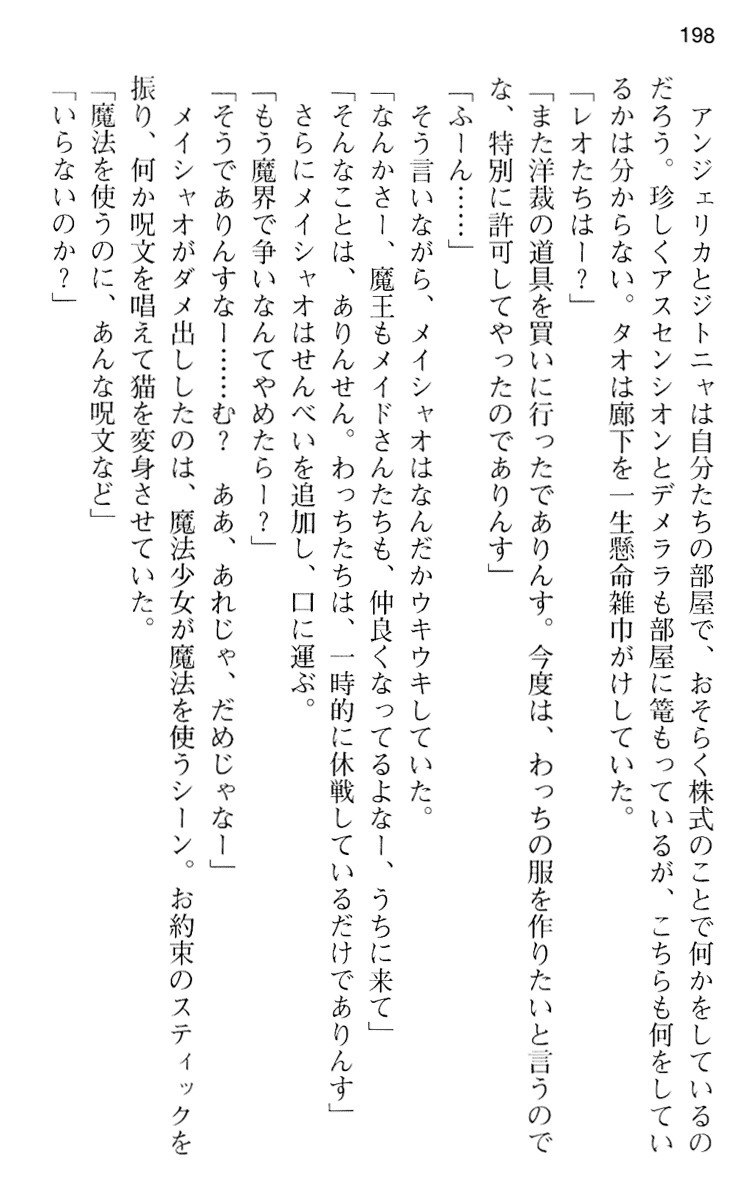 198
　アンジェリカとジトニャは自分たちの部屋で、おそらく株式のことで何かをしているの
だろう。珍しくアスセンシオンとデメララも部屋に篭もっているが、こちらも何をしてい
るかは分からない。タオは廊下を一生懸命雑巾がけしていた。
「レオたちはー？」
「また洋裁の道具を買いに行ったでありんす。今度は、わっちの服を作りたいと言うので
な、特別に許可してやったのでありんす」
「ふーん……」
　そう言いながら、メイシャオはなんだかウキウキしていた。
「なんかさー、魔王もメイドさんたちも、仲良くなってるよなー、うちに来て」
「そんなことは、ありんせん。わっちたちは、一時的に休戦しているだけでありんす」
　さらにメイシャオはせんべいを追加し、口に運ぶ。
「もう魔界で争いなんてやめたらー？」
「そうでありんすなー……む？　ああ、あれじゃ、だめじゃなー」
　メイシャオがダメ出ししたのは、魔法少女が魔法を使うシーン。お約束のスティックを
振り、何か呪文を唱えて猫を変身させていた。
「魔法を使うのに、あんな呪文など」
「いらないのか？」